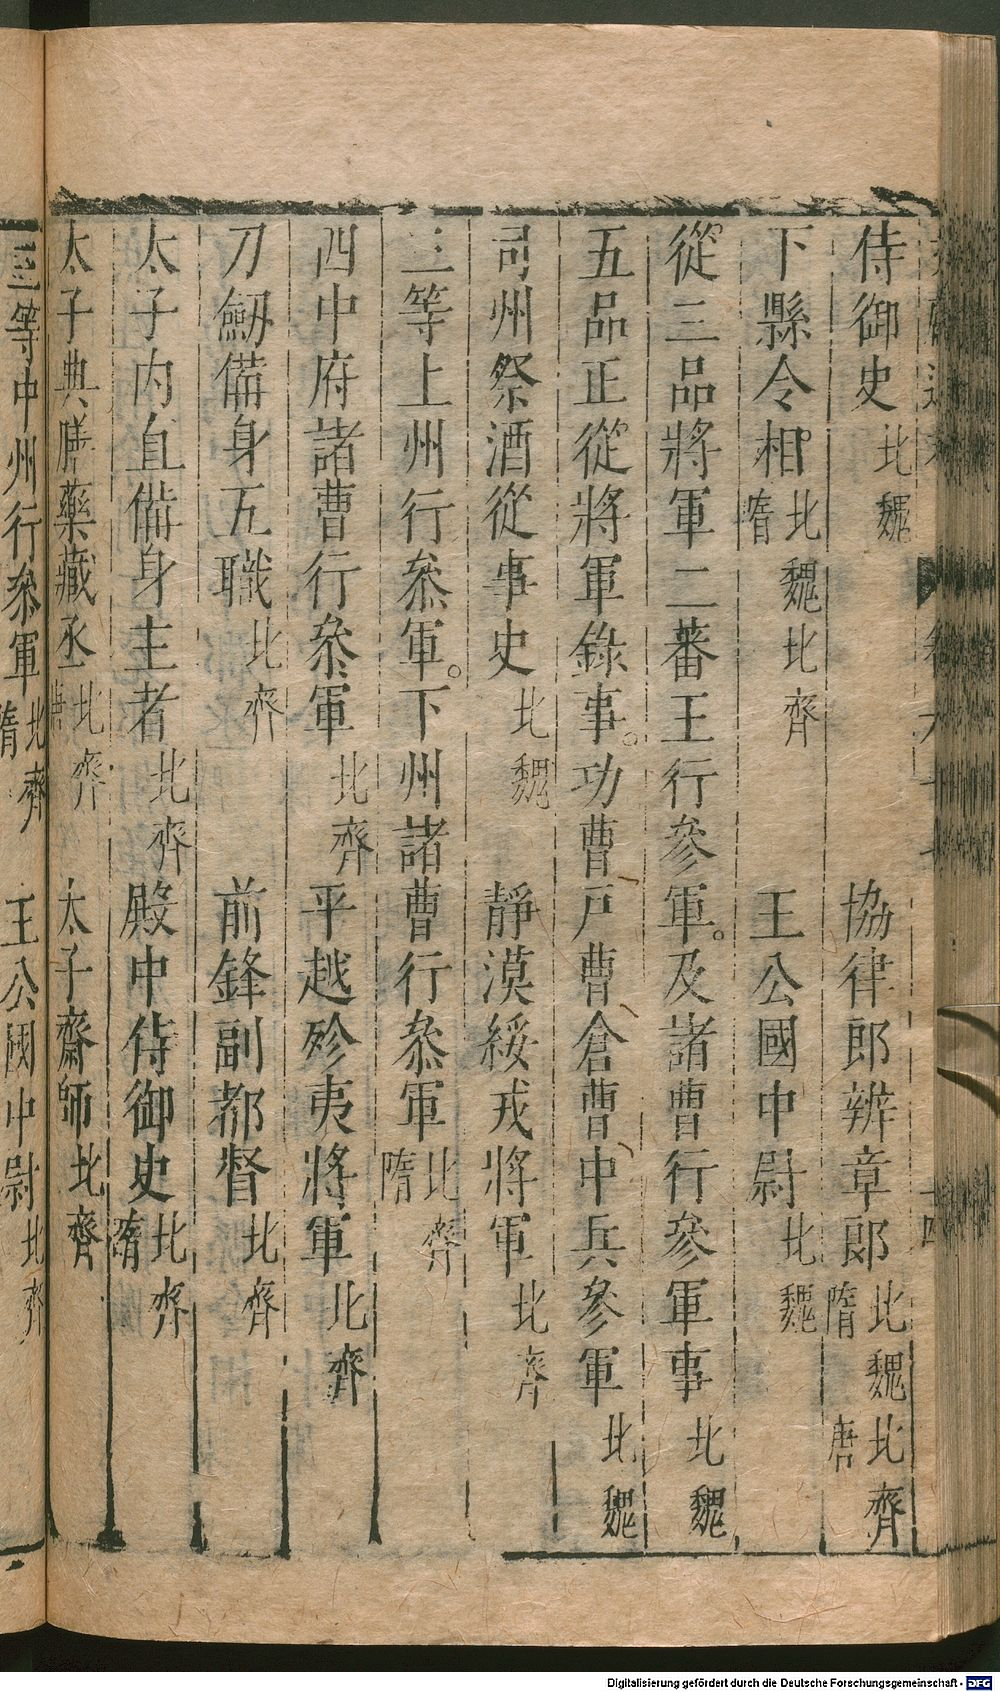 侍御史北魏 協律郎辨章郎北魏北齊隋唐
下縣令相北魏北齊隋 王公國中尉北魏
從三品將軍二蕃王行參軍。及諸曹行參軍事北魏
五品正從將軍錄事。功曹戶曹倉曹中兵參軍北魏
司州祭酒從事史北魏 靜漠綏戎將軍北齊
三等上州行叅軍。下州諸曹行叅軍北齊隋
四中府諸曹行叅軍北齊 平越殄夷將軍北齊
刀劒備身五職北齊 前鋒副都督北齊
太子內直備身主者北齊 殿中侍御史北齊隋
太子典膳藥藏丞北齊唐 太子齋師北齊
三等中州行叅軍北齊隋 王公國中尉北齊
Digitalisierung gefördert durch die Deutsche Forschungsgemeinschaft - DFG